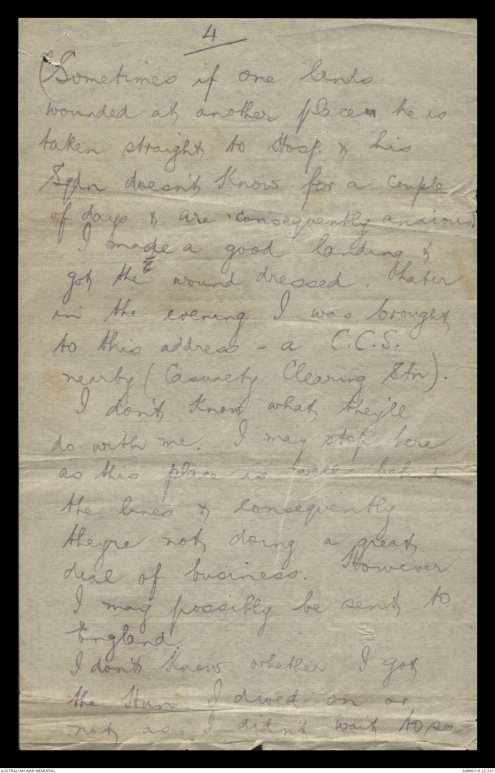 4
(Sometimes if one lands
wounded at another place he is
taken straight to Hosp. & his
Sqdn doesn't know for a couple
of days & are consequently anxious)
I made a good landing &
got the wound dressed. Later
in the evening I was brought
to this address - a C.C.S.
nearby (Casualty Clearing Stn).
I don't know what they'll
do with me. I may stop here
as this place is well behind
the lines & consequently
theyre not doing a great
deal of business. However
I may possibly be sent to
England.
I don't know whether I got
the Hun I dived on or
not as I didn't wait to see
AUSTRALIAN WAR MEMORIAL